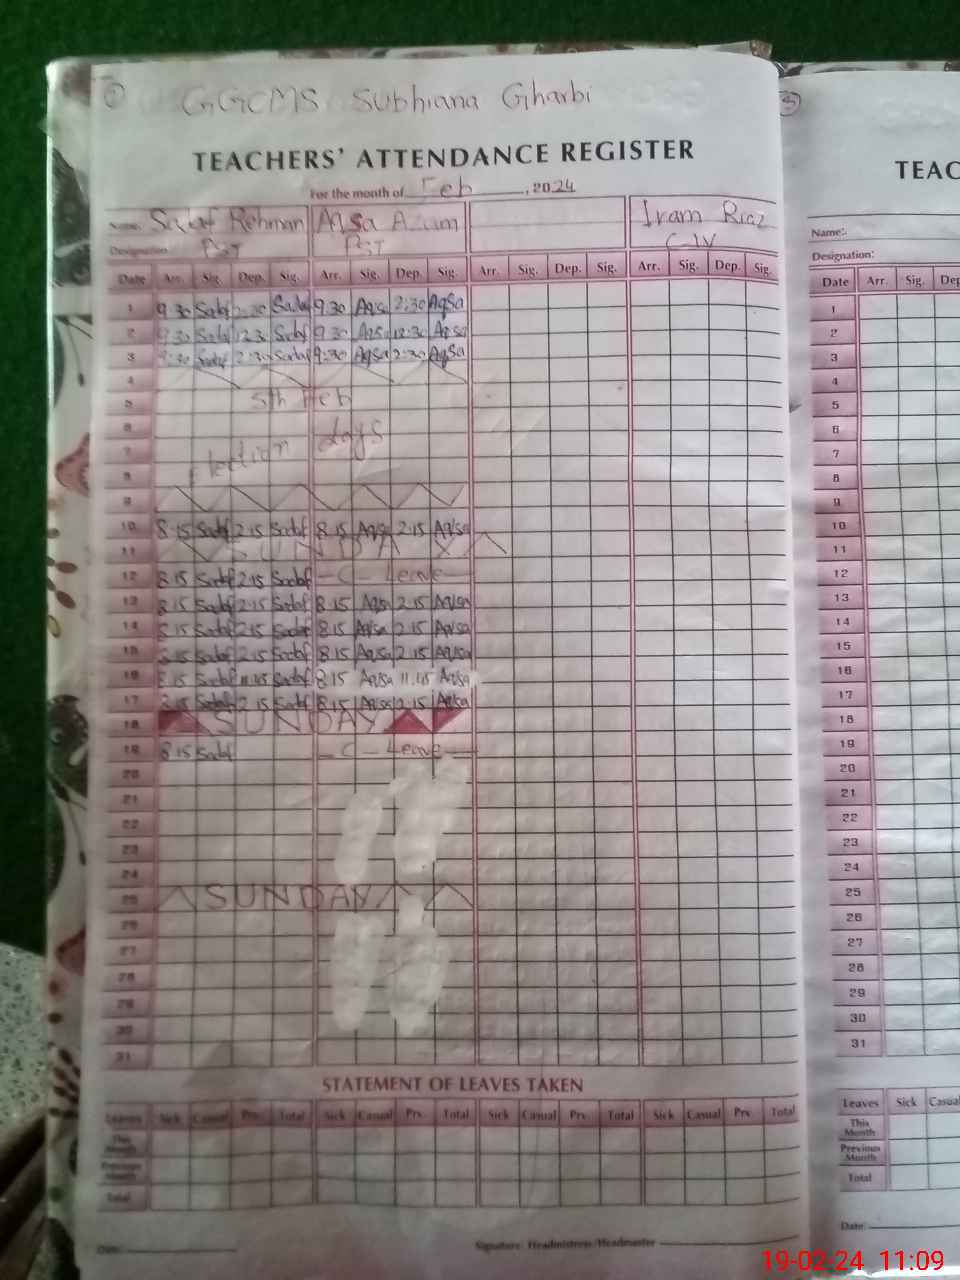 GGCMS Subhiana Gharbi
TEACHERS' ATTENDANCE REGISTER
For the month of Feb, 2024
Name: Sadaf Rehman Aqsa Azam Iram Riaz
Designation: PST PST C-IV
Date Arr. Sig. Dep. Sig. Arr. Sig. Dep. Sig. Arr. Sig. Dep. Sig. Arr. Sig. Dep. Sig.
1 9:30 Sadaf 2:30 Sadaf 9:30 Aqsa 2:30 Aqsa
2 9:30 Sadaf 12:30 Sadaf 9:30 Aqsa 12:30 Aqsa
3 9:30 Sadaf 2:30 Sadaf 9:30 Aqsa 2:30 Aqsa
4
5 5th Feb
6
7 Election days
8
9
10 8:15 Sadaf 2:15 Sadaf 8:15 Aqsa 2:15 Aqsa
11 SUNDAY
12 8:15 Sadaf 2:15 Sadaf - C - Leave -
13 8:15 Sadaf 2:15 Sadaf 8:15 Aqsa 2:15 Aqsa
14 8:15 Sadaf 2:15 Sadaf 8:15 Aqsa 2:15 Aqsa
15 8:15 Sadaf 2:15 Sadaf 8:15 Aqsa 2:15 Aqsa
16 8:15 Sadaf 11:45 Sadaf 8:15 Aqsa 11:45 Aqsa
17 8:15 Sadaf 2:15 Sadaf 8:15 Aqsa 2:15 Aqsa
18 SUNDAY
19 8:15 Sadaf - C - Leave -
20
21
22
23
24
25 SUNDAY
26
27
28
29
30
31
STATEMENT OF LEAVES TAKEN
Leaves Sick Casual Prv. Total Sick Casual Prv. Total Sick Casual Prv. Total Sick Casual Prv. Total
This Month
Previous Month
Total
Date:
Signature: Headmistress/Headmaster
TEAC
Name:
Designation:
Date Arr. Sig. Dep
1
2
3
4
5
6
7
8
9
10
11
12
13
14
15
16
17
18
19
20
21
22
23
24
25
26
27
28
29
30
31
Leaves Sick Casual
This Month
Previous Month
Total
Date:
19-02-24 11:09